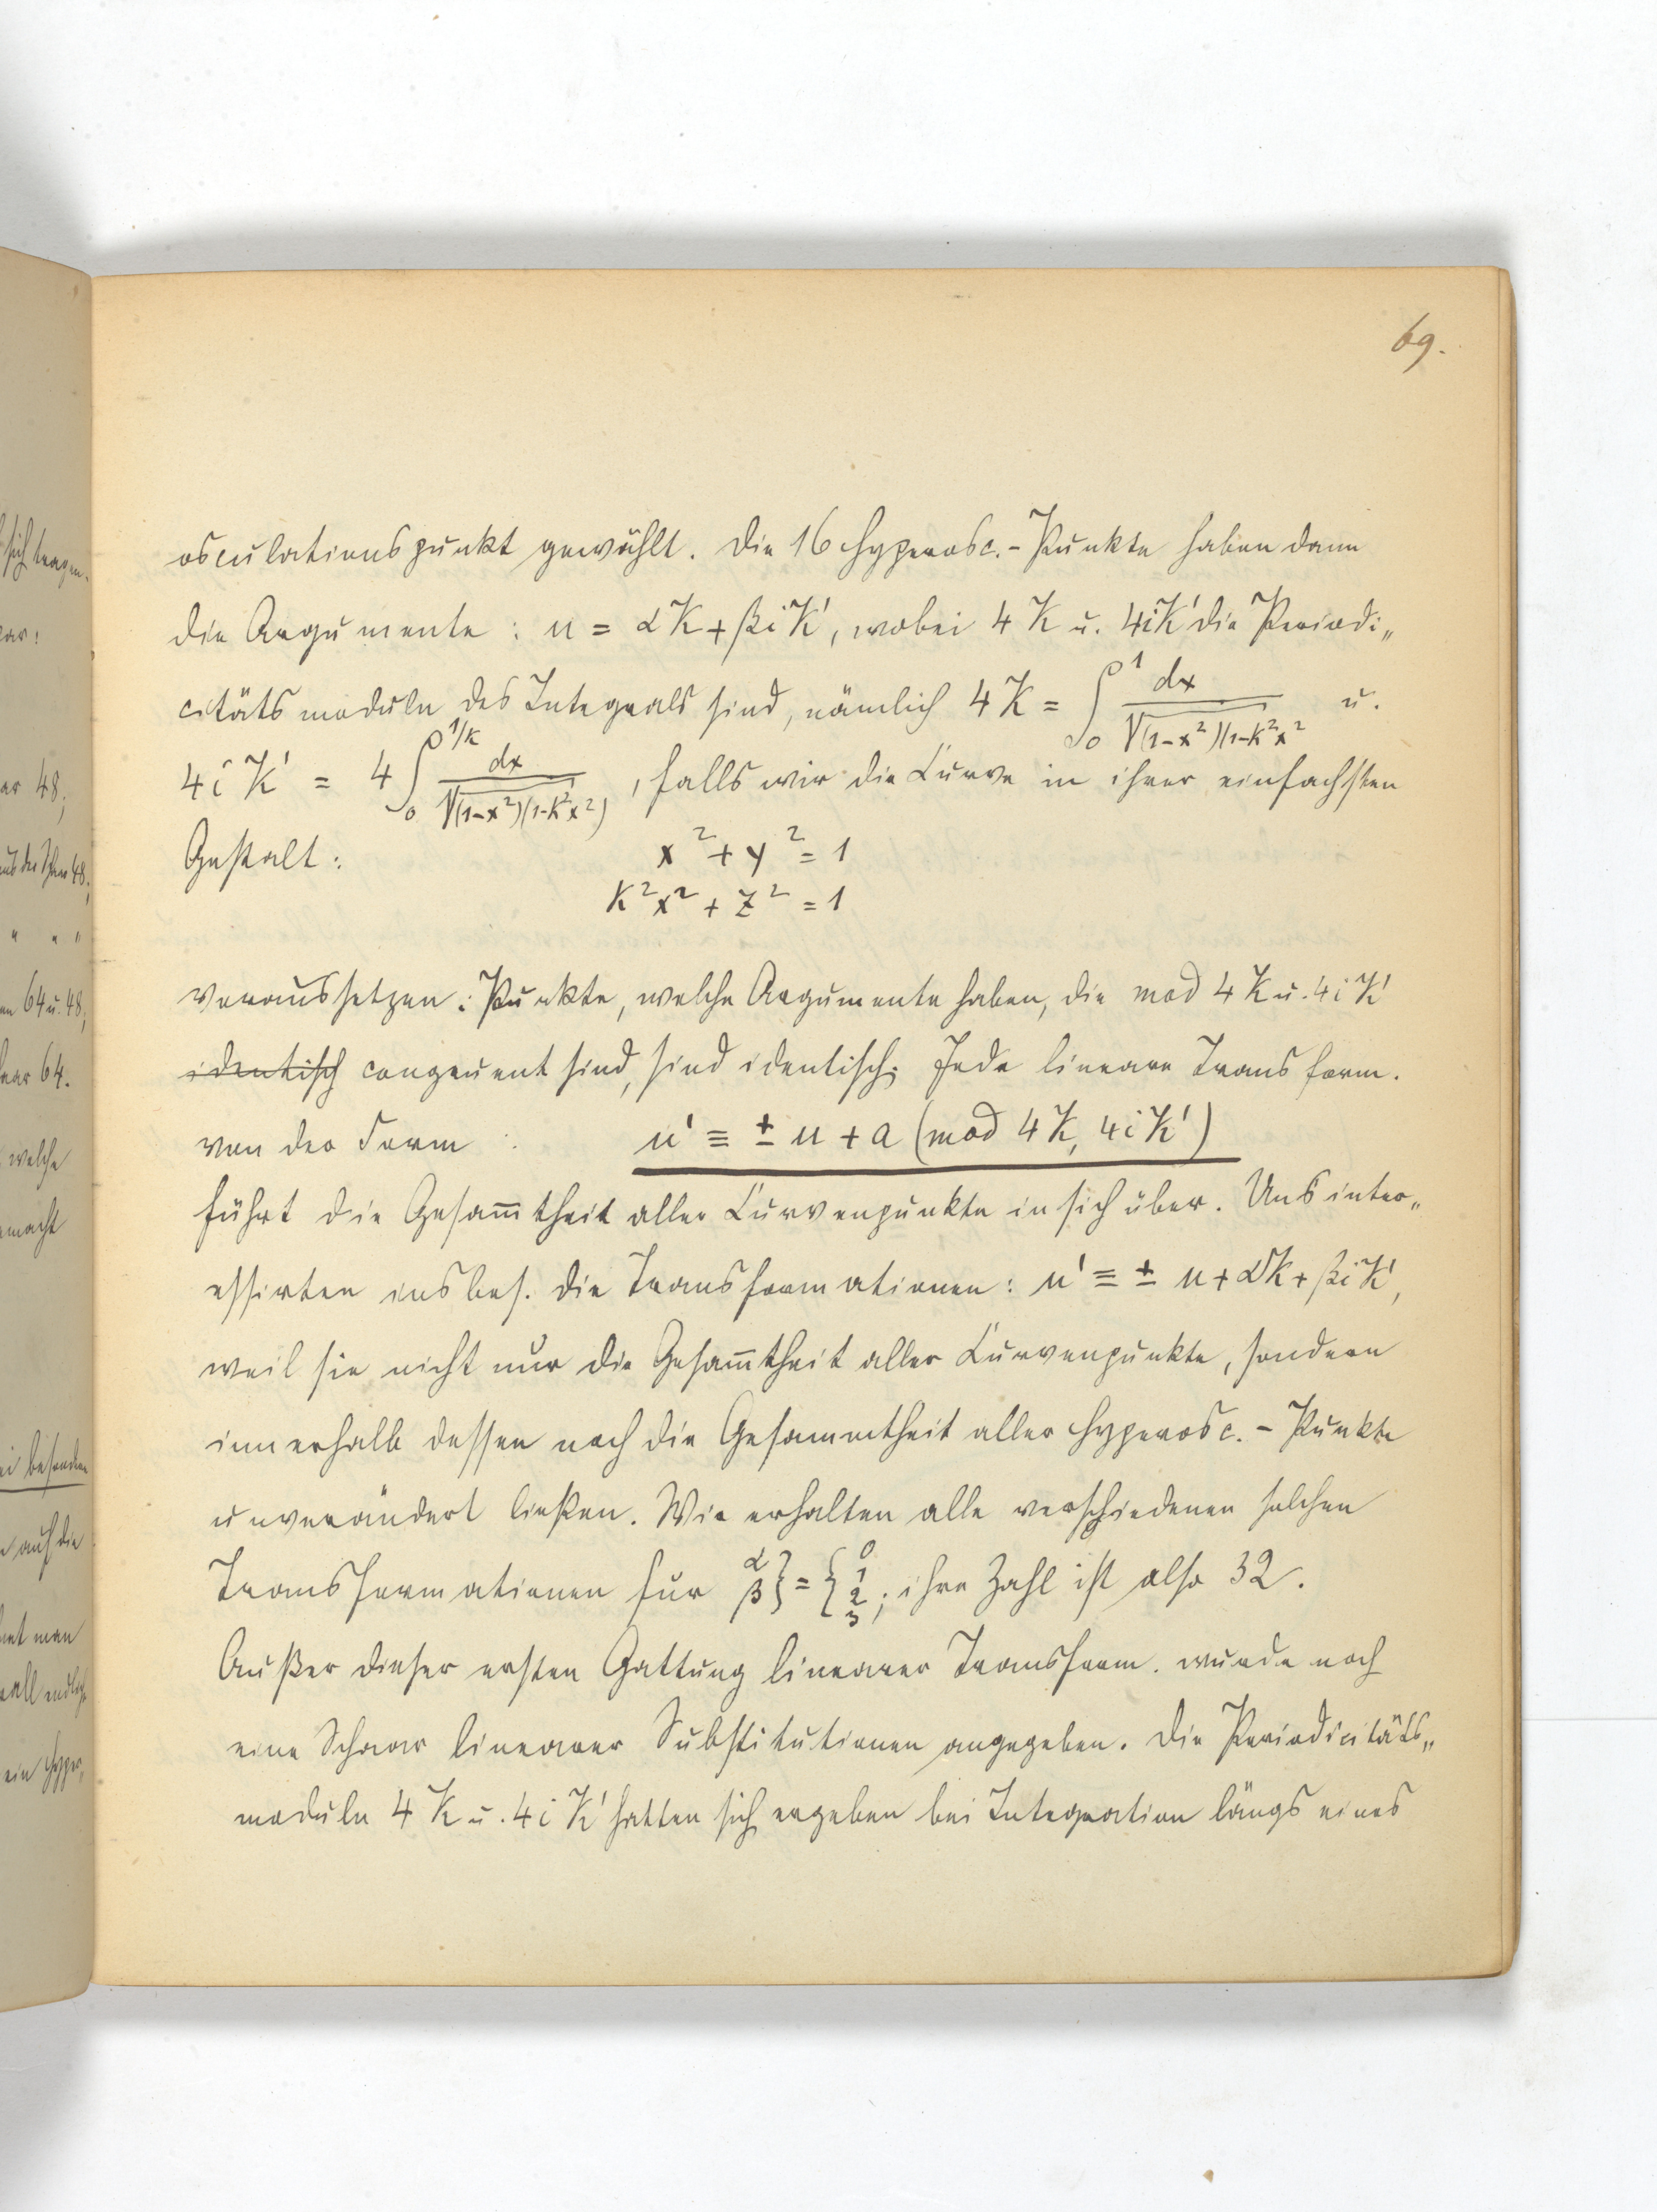 69.
osculationspunkt gewählt. Die 16 Hyperosc.-Punkte haben dann
die Argumente : u = αK + βiK', wobei 4K u. 4iK' die Periodi„
citäts moduln des Integrals sind, nämlich 4K = ∫₀¹ dx/√(1-x²)(1-k²x² u.
4iK' = 4∫₀^{1/k} dx/√(1-x²)(1-k²x²) , falls wir die Curve in ihrer einfachsten
Gestalt : x² + y² = 1
k²x² + z² = 1
voraussetzen : Punkte, welche Argumente haben, die mod 4K u. 4iK'
identisch congruent sind, sind identisch. Jede lineare Transform.
von der Form : u' ≡ ± u + a (mod 4K, 4iK')
führt die Gesam̅theit aller Curvenpunkte in sich über. Uns inter„
essirten insbes. die Transformationen : u' ≡ ± u + αK + βiK',
weil sie nicht nur die Gesam̅theit aller Curvenpunkte, sondern
innerhalb dessen noch die Gesammtheit aller Hyperosc.-Punkte
unverändert ließen. Wir erhalten alle verschiedenen solchen
Transformationen für α β} = {0 1 2 3 ; ihre Zahl ist also 32.
Außer dieser ersten Gattung linearer Transform. wurde noch
eine Schaar linearer Substitutionen angegeben. Die Periodicitäts„
moduln 4K u. 4iK' hatten sich ergeben bei Integration längs eines
sich tragen.
ar 48;
aus der Schaar 48;
" " "
64 u. 48;
aar 64.
welche
macht
bei besondern
auf die
man
ein Hyper„